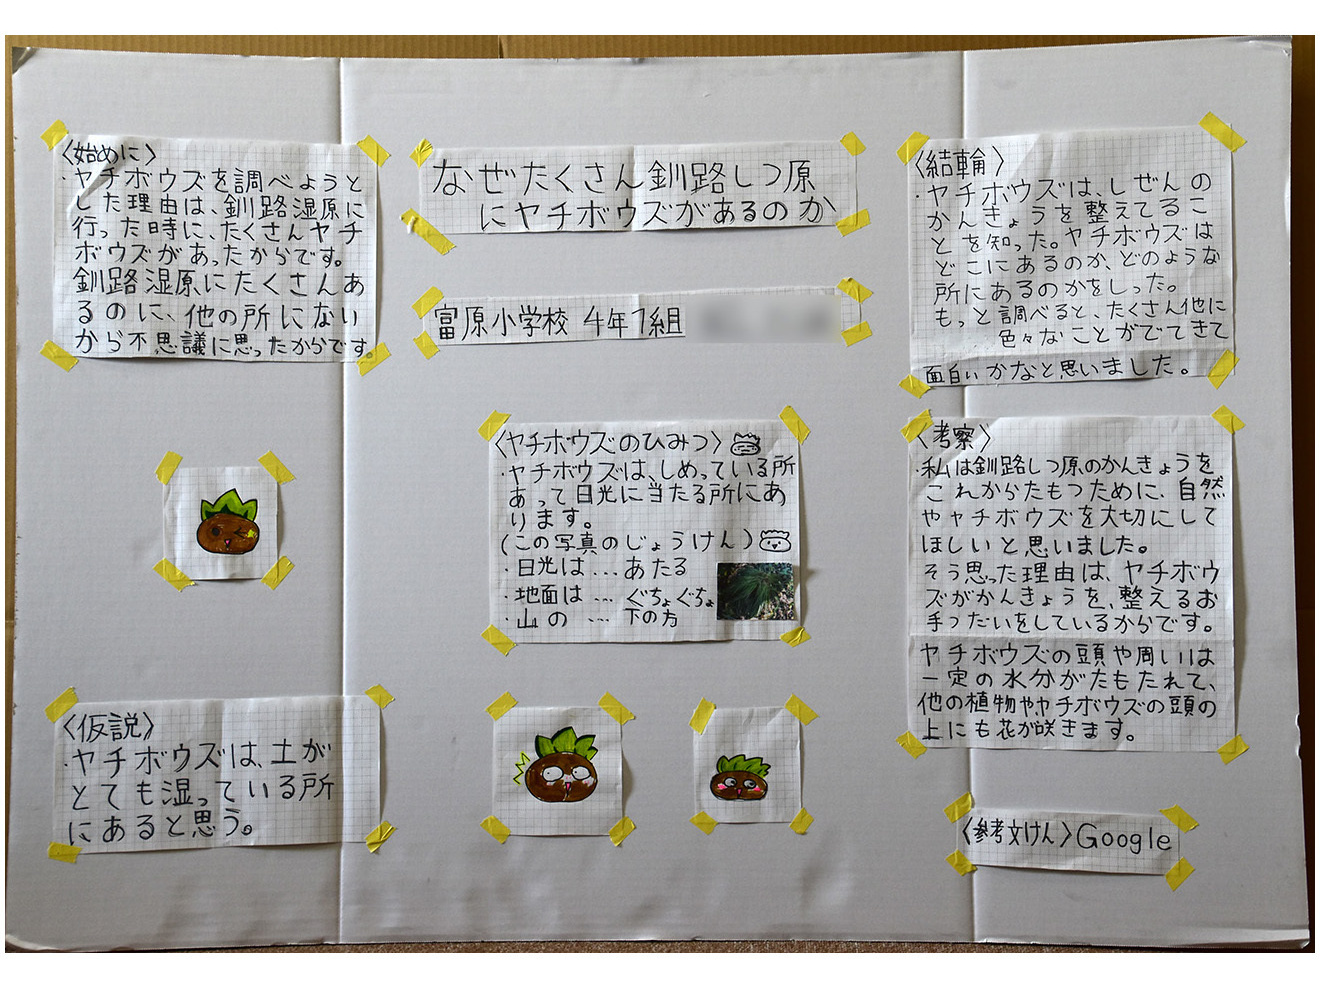 なぜたくさん釧路しつ原
にヤチボウズがあるのか
富原小学校 4年1組
〈始めに〉
・ヤチボウズを調べようと
した理由は、釧路湿原に
行った時に、たくさんヤチ
ボウズがあったからです。
釧路湿原にたくさんあ
るのに、他の所にない
から不思議に思ったからです。
〈仮説〉
・ヤチボウズは、土が
とても湿っている所
にあると思う。
〈ヤチボウズのひみつ〉
・ヤチボウズは、しめっている所
あって日光に当たる所にあ
ります。
(この写真のじょうけん)
・日光は…あたる
・地面は…ぐちょぐちょ
・山の…下の方
〈結輪〉
・ヤチボウズは、しぜんの
かんきょうを整えてるこ
とを知った。ヤチボウズは
どこにあるのか、どのような
所にあるのかをしった。
もっと調べると、たくさん他に
色々なことがでてきて
面白いかなと思いました。
〈考察〉
・私は釧路しつ原のかんきょうを
これからたもつために、自然
やヤチボウズを大切にして
ほしいと思いました。
そう思った理由は、ヤチボウ
ズがかんきょうを、整えるお
手つだいをしているからです。
ヤチボウズの頭や周いは
一定の水分がたもたれて、
他の植物やヤチボウズの頭の
上にも花が咲きます。
〈参考文けん〉Google